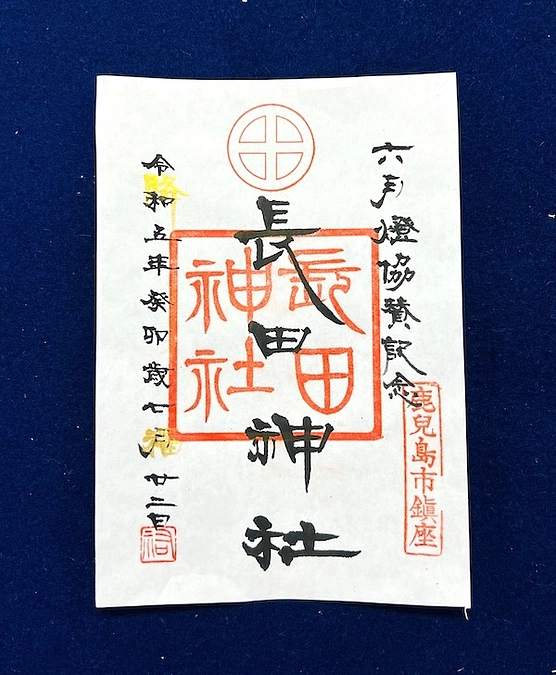 六月燈協賛記念
鹿兒島市鎮座
長田神社
長田
神社
令和五年癸卯歳七月廿二日